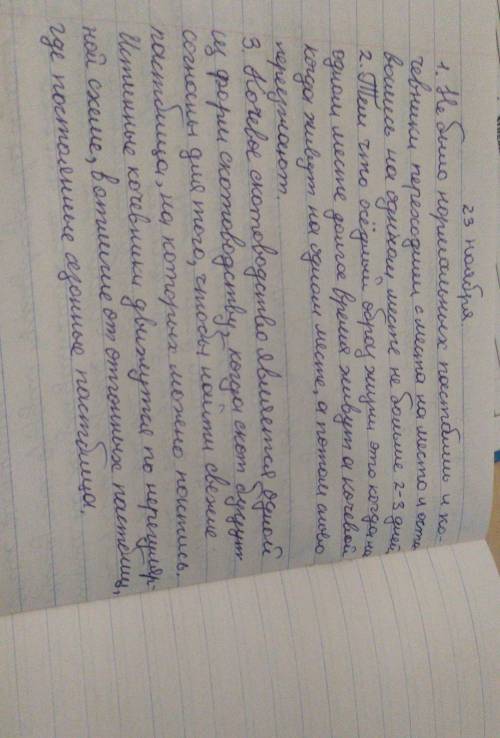 23 ноября
1. Не было нормальных пастбишь и ко-
чевники переходили с места на место и оста
вались на одном месте не больше 2-3 дней
2. Тем что осёдлый образ жизни это когда на
одном месте долга время живут а кочевой
когда живут на одном месте, а потом снова
переезжают.
3. Кочевое скотоводство является одной
из форм скотоводству, когда скот будут
согнаны для того, чтобы найти свежие
пастбища, на которых можно пастись.
Истинные кочевники движутся по нерегуляр-
ной схеме, в отличие от отгонных пастбищ,
где постоянные сезонные пастбища.